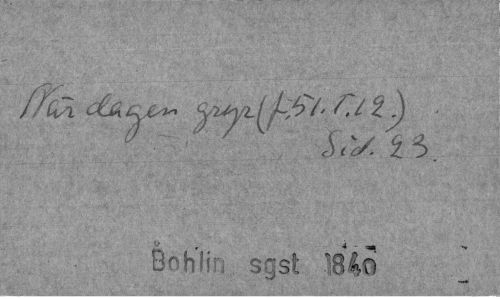 När dagen gryr (f. 51. T. 12.)
Sid. 23.
Bohlin sgst 1840